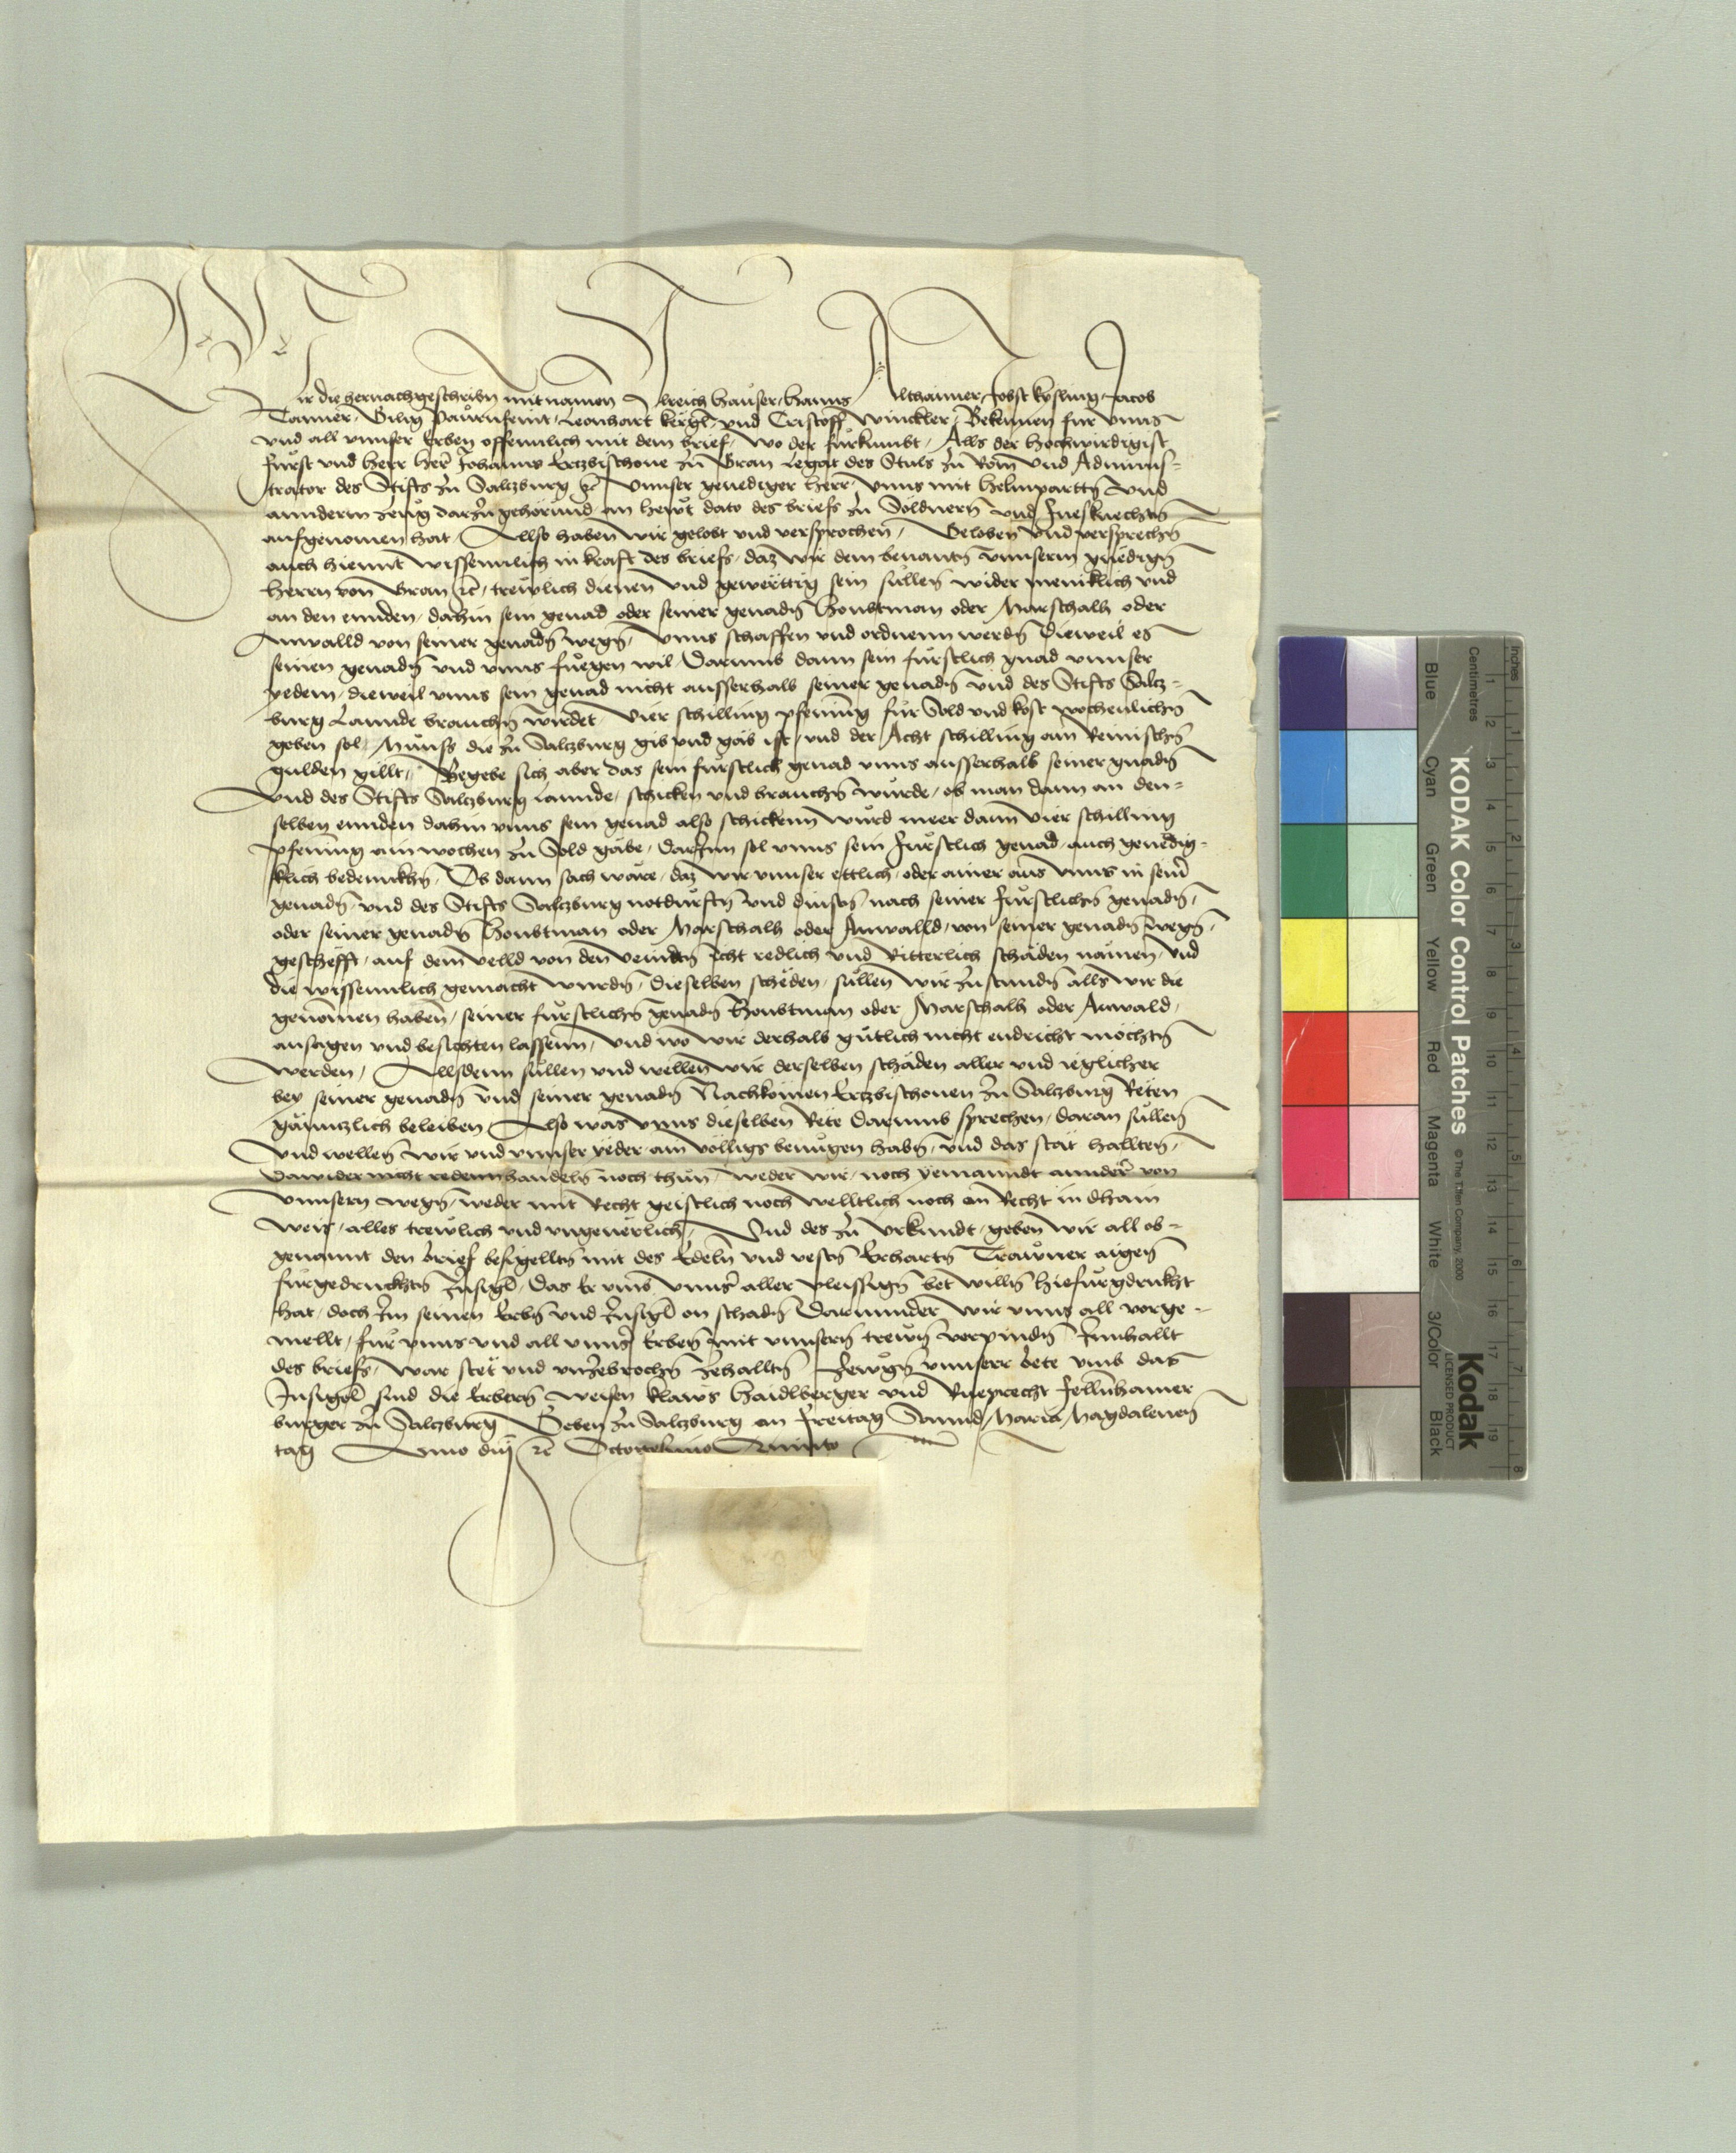 Wir die hernachgeschribn mitnamen Ulreich hauser, hanns Althaimer, Jobst kösling, Jacob
Tanner, Gilig Paurnfeint, Leonhart kergl, und Cristoff Winckler, Bekennen fur unns
und all unnser Erben offennlich mit dem brief, wo der fürkumbt, Alls der hochwirdigist
fürst und herr herr Johanns Ertzbischove zu Gran Legat des Stuls zu Rom und Adminis-
trator des Stifts zu Saltzburg ꝛc unnser genediger herr unns mit helmpartn und
annderm zeug darzu gehörund an hewt dato des briefs zu Söldnern und fuesknechtn
aufgenomen hat, Allso haben wir gelobt und versprochen, Geloben und versprechn
auch hiemit wissennlich in kraft des briefs, daz wir dem benantn unnserm gnedign
herrn von Gran ꝛc, trewlich dienen und gewerttig sein sullen wider meniklich und
an den ennden, dahin sein genad oder seiner genadn Houbtman oder Marschalh oder
Anwalld von seiner genadn wegn, unns schaffen und ordnenn werdn Dieweil es
seinen genadn und unns fuegen wil, Darumb dann sein fürstlich gnad unnser
yedem, dieweil unns sein genad nicht ausserhalb seiner genadn und des Stifts Saltz-
burg Lannde brauchn wirdet, vier schilling pfening für Sold und kost wochenlichn
geben sol, Münss die zu Saltzburg gib und gäb ist, und der Acht schilling ain Reinischn
gulden gillt, Begebe sich aber das sein fürstlich genad unns ausserhalb seiner gnadn
und des Stifts Saltzburg Lannde, schicken und brauchn wurde, ob man dann an den-
selben ennden dahin unns sein genad also schickenn wurd meer dann vier schilling
pfening ain wochen zu Sold gäbe, darInn sol unns sein fürstlich genad, auch genedig-
klich bedennkhn, Ob dann sach wäre, daz wir unnser ettlich, oder ainer aus unns in seinr
genadn, und des Stifts Saltzburg notdurftn und dinstn nach seiner fürstlichn genadn,
oder seiner genadn Houbtman oder Marschalh oder Anwalld, von seiner genadn wegn,
geschefft, auf dem velld von den veindtn icht redlich und Ritterlich schäden nämen, und
die wissennlich gemacht wurdn, dieselben scheden, sullen wir zustundn alls wir die
genomen haben, seiner fürstlichn genadn Houbtman oder Marschalh oder Anwald,
ansagen und besichten lassenn, und wo wir derhalb gütlich nicht endricht möchtn
werden, Allsdenn sullen und wellen wir derselben schäden aller und ieglicher
bey seiner genadn und seiner genadn Nachkomen Ertzbischoven zu Saltzburg Reten
gänntzlich beleiben Also was unns dieselben Rete darumb sprechen, daran sullen
und wellen wir und unnser yeder, ain völligs benügen habn, und das stät hallten,
dawider nicht reden handeln noch thun, weder wir, noch yemanndt annder von
unnsern wegn, weder mit Recht geistlich noch welltlich noch an Recht in dhain
weis, alles trewlich und ungeuerlich, Und des zu Urkundt, geben wir all ob-
genannt den brief besigelltn mit des Edeln und vestn Erhartn Trawner aigen
fürgedruckhtn Insigl, Das Er unns unnsr aller vleissign bet willn hiefürgdrukht
hat, doch Im seinen Erbn und Insigl on schadn Darunnder wir unns all vorge-
mellt, fur unns und all unnsr Erben mit unnsern trewn verpindn Innhallt
des briefs, war stet und unzebrochn zehalltn Zewgn unnserr bete umb das
Insigl sind die Erbern weisen klaws Haidlberger und Rueprecht fellnhamer
burger zu Saltzburg Geben zu Saltzburg an freitag Sannd Maria Magdalenen
tag Anno dni ꝛc Octogesimo Quinto
KODAK Color Control Patches © The Tiffen Company, 2000
Kodak
LICENSED PRODUCT
Blue Cyan Green Yellow Red Magenta White 3/Color Black
Inches 1 2 3 4 5 6 7 8
Centimetres 1 2 3 4 5 6 7 8 9 10 11 12 13 14 15 16 17 18 19